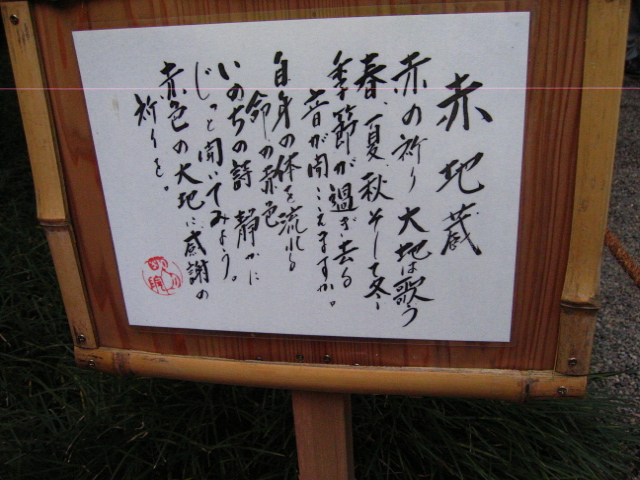 赤地蔵
赤の祈り 大地は歌う
春、夏、秋そして冬
季節が過ぎ去る
音が聞こえますか。
自身の体を流れる
命の赤色
いのちの詩 静かに
じっと聞いてみよう。
赤色の大地に感謝の
祈りを。